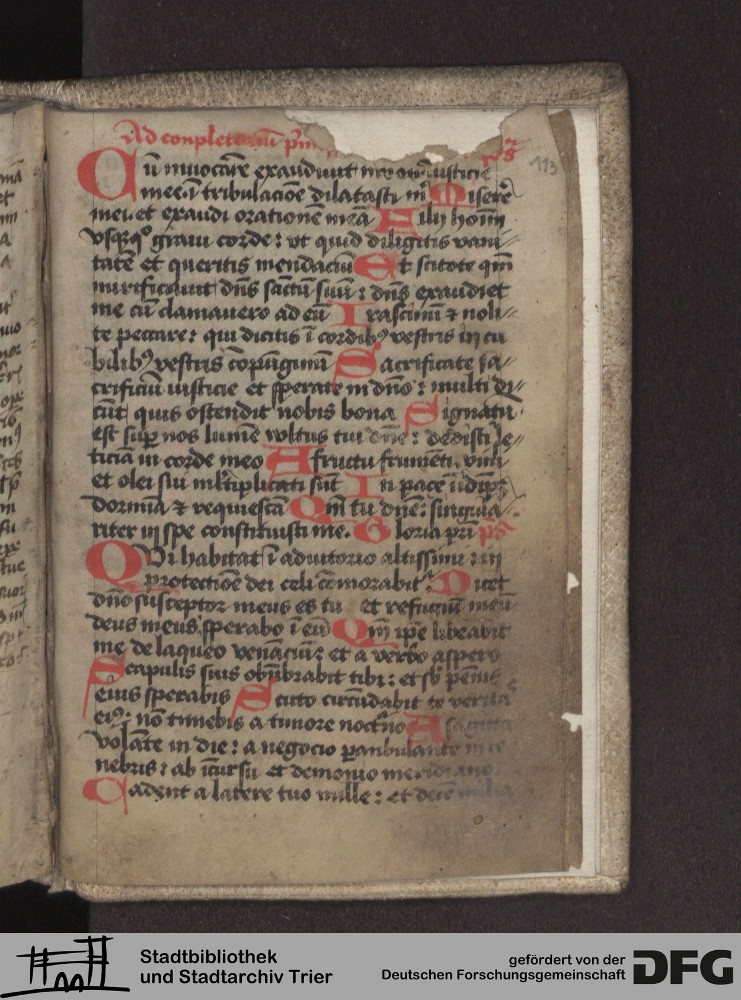 Ad conpletoriu pm ps
113
Cū inuocarē exaudiuit me iusticie
mee: ī tribulacōe dilatasti m̄ Miserē
mei: et exaudi oratiōnē meā Filij hom̄
vsq̄ʒ qͦ graui corde: vt quid diligitis vani⸗
tatē et queritis mendaciū Et scitote qm̄
mirificauit dn̄s sāctū suū: dn̄s exaudiet
me cū clamauero ad eū Irascimī ⁊ noli⸗
te peccare: qui dicitis ī cordibꝰ vestris in cu
bilibꝰ vestris cōpūgimī Sacrificate sa⸗
crificiū iusticie et sperate in dn̄o: multi di⸗
cūt quis ostendit nobis bona Signatū
est suꝑ nos lumē voltus tui dn̄e: dedisti le⸗
ticiā in corde meo A fructu frumēti vini
et olei sui ml̄tiplicati sūt In pace ī idip̄
dormiā ⁊ requiescā Qm̄ tu dn̄e: singula⸗
riter in spe constituisti me. Gloria pri ps
Qui habitat ī adiutorio altissimi: in
protectiōe dei celi cōmorabit᷑ Dicet
dn̄o susceptor meus es tu et refugiū meū
deus meus sperabo ī eū Qm̄ ip̄e libeabit
me de laqueo venāciū: et a verbo aspero
Scapulis suis obūbrabit tibi: et sb pēnis
eius sperabis Scuto circūdabit te verita
eiꝰ: nō timebis a timore noct᷑no A sagitta
volāte in die: a negocio ꝑanbulante in te
nebris: ab īcursu et demonio meridiano
Cadent a latere tuo mille: et dece milia
Stadtbibliothek
und Stadtarchiv Trier
gefördert von der
Deutschen Forschungsgemeinschaft
DFG